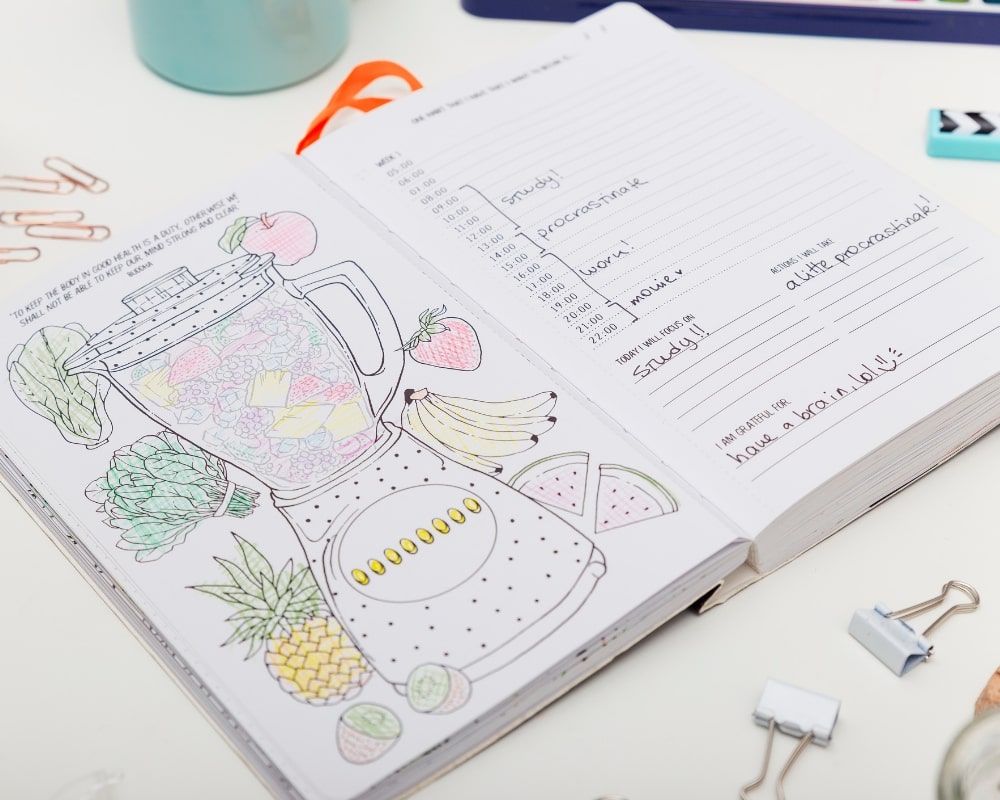 "TO KEEP THE BODY IN GOOD HEALTH IS A DUTY, OTHERWISE WE
SHALL NOT BE ABLE TO KEEP OUR MIND STRONG AND CLEAR."
BUDDHA
ONE HABIT THAT I HAVE THAT I WANT TO BREAK IS...
WEEK 1
05:00
06:00
07:00
08:00
09:00
10:00
11:00
12:00
13:00
14:00
15:00
16:00
17:00
18:00
19:00
20:00
21:00
22:00
study!
procrastinate
work!
movie
TODAY I WILL FOCUS ON
study!!
ACTIONS I WILL TAKE
a little procrastinate!
I AM GRATEFUL FOR
have a brain lol!